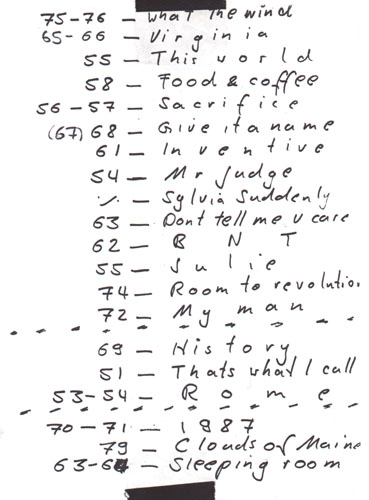 75-76 - What the wind
65-66 - Virginia
55 - This world
58 - Food & coffee
56-57 - Sacrifice
(67) 68 - Give it a name
61 - Inventive
54 - Mr Judge
·/. - Sylvia Suddenly
63 - Dont tell me u care
62 - B N T
55 - Julie
74 - Room to revolution
72 - My man
69 - History
51 - Thats what I call
53-54 - Rome
70-71 - 1987
79 - Clouds of Maine
63-64 - Sleeping room